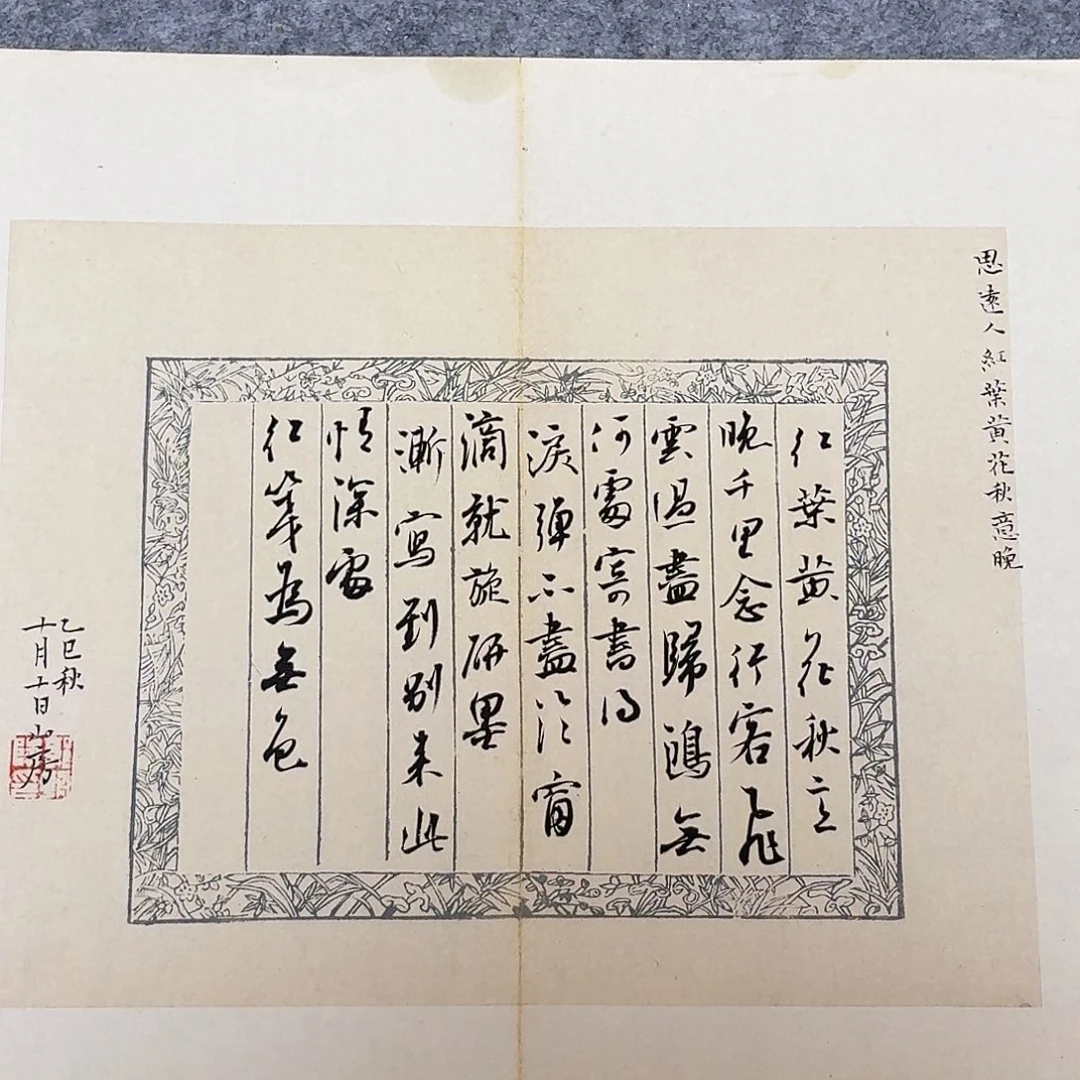 思遠人紅葉黄花秋意晚
紅葉黄花秋意
晚千里念行客飛
雲過盡歸鴻無
何處寄書得
淚彈不盡臨窗
滴就旋研墨
漸寫到別來此
情深處
紅箋為無色
乙巳秋
十月十日山房